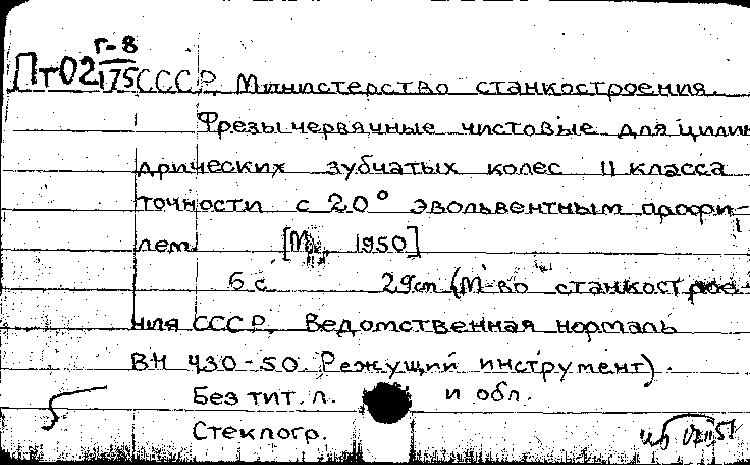 Г-8
Пт02
175 СССР. Министерство станкостроения.
Фрезы червячные чистовые для цилин
дрических зубчатых колес II класса
точности с 20° эвольвентным профи-
лем. [М., 1950]
6 с. 29 cm (М-во станкострое-
ния СССР. Ведомственная нормаль
ВН 430-50. Режущий инструмент).
Без тит. л. и обл.
Стеклогр.